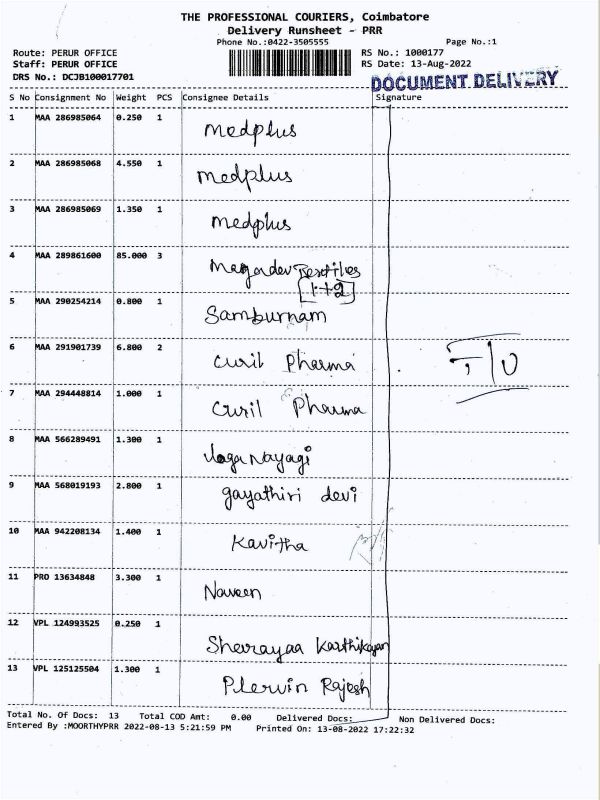 THE PROFESSIONAL COURIERS, Coimbatore
Delivery Runsheet - PRR
Phone No.:0422-3505555 Page No.:1
Route: PERUR OFFICE RS No.: 1000177
Staff: PERUR OFFICE RS Date: 13-Aug-2022
DRS No.: DCJB100017701 DOCUMENT DELIVERY
S No Consignment No Weight PCS Consignee Details Signature
1 MAA 286985064 0.250 1 medplus
2 MAA 286985068 4.550 1 medplus
3 MAA 286985069 1.350 1 medplus
4 MAA 289861600 85.000 3 Magadev Textiles
1+2
5 MAA 290254214 0.800 1 Samburnam
6 MAA 291901739 6.800 2 Curil Pharma
7 MAA 294448814 1.000 1 Curil Pharma
8 MAA 566289491 1.300 1 Nayagi
9 MAA 568019193 2.800 1 gayathiri devi
10 MAA 942208134 1.400 1 Kavitha
11 PRO 13634848 3.300 1 Naveen
12 VPL 124993525 0.250 1 Sherayaa Karthikayan
13 VPL 125125504 1.300 1 Plervin Rajesh
Total No. Of Docs: 13 Total COD Amt: 0.00 Delivered Docs: Non Delivered Docs:
Entered By :MOORTHYPRR 2022-08-13 5:21:59 PM Printed On: 13-08-2022 17:22:32